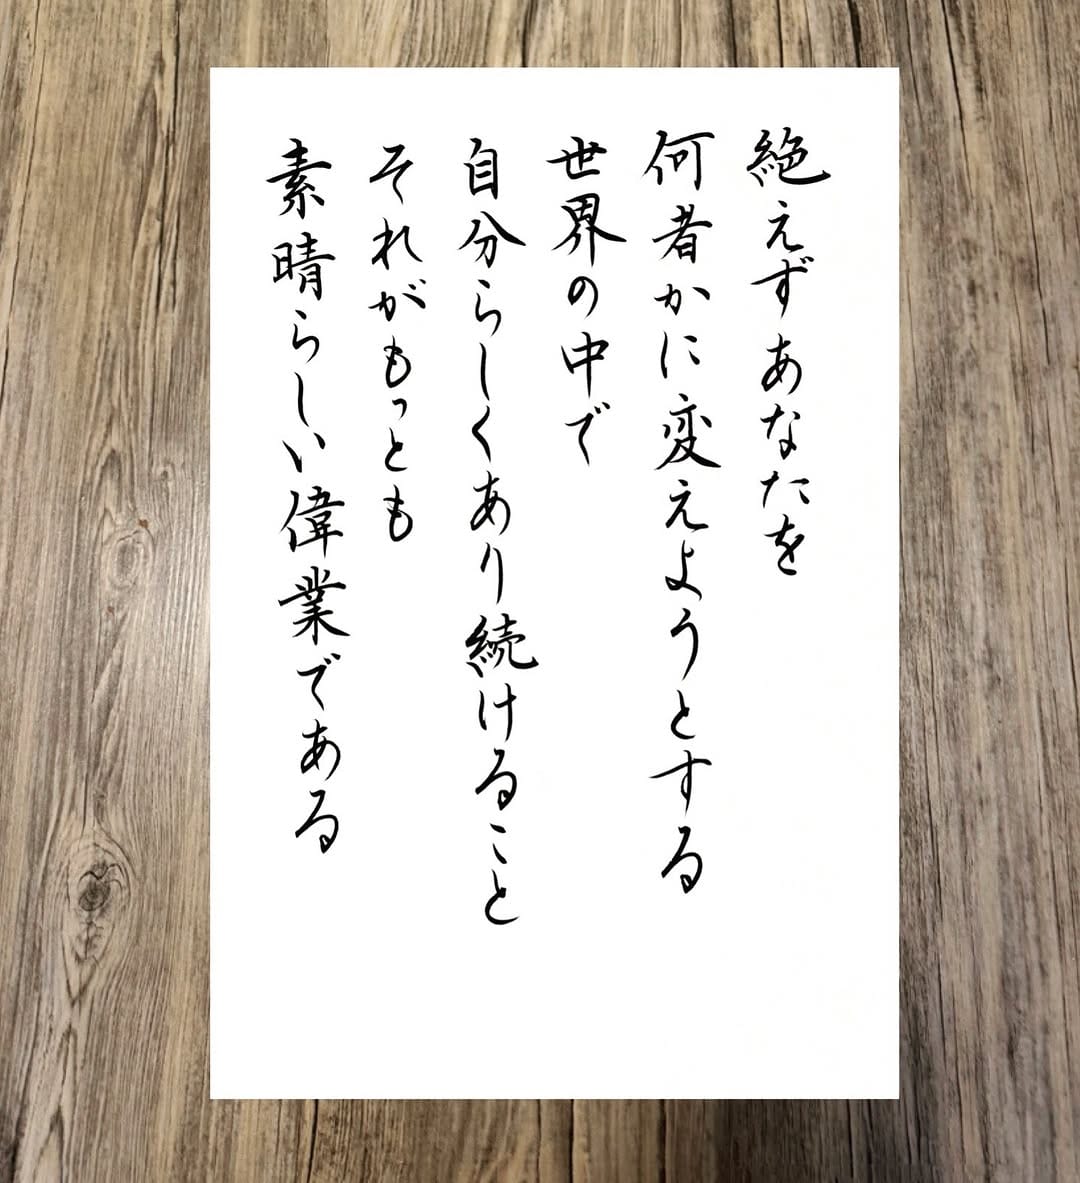 絶えずあなたを
何者かに変えようとする
世界の中で
自分らしくあり続けること
それがもっとも
素晴らしい偉業である